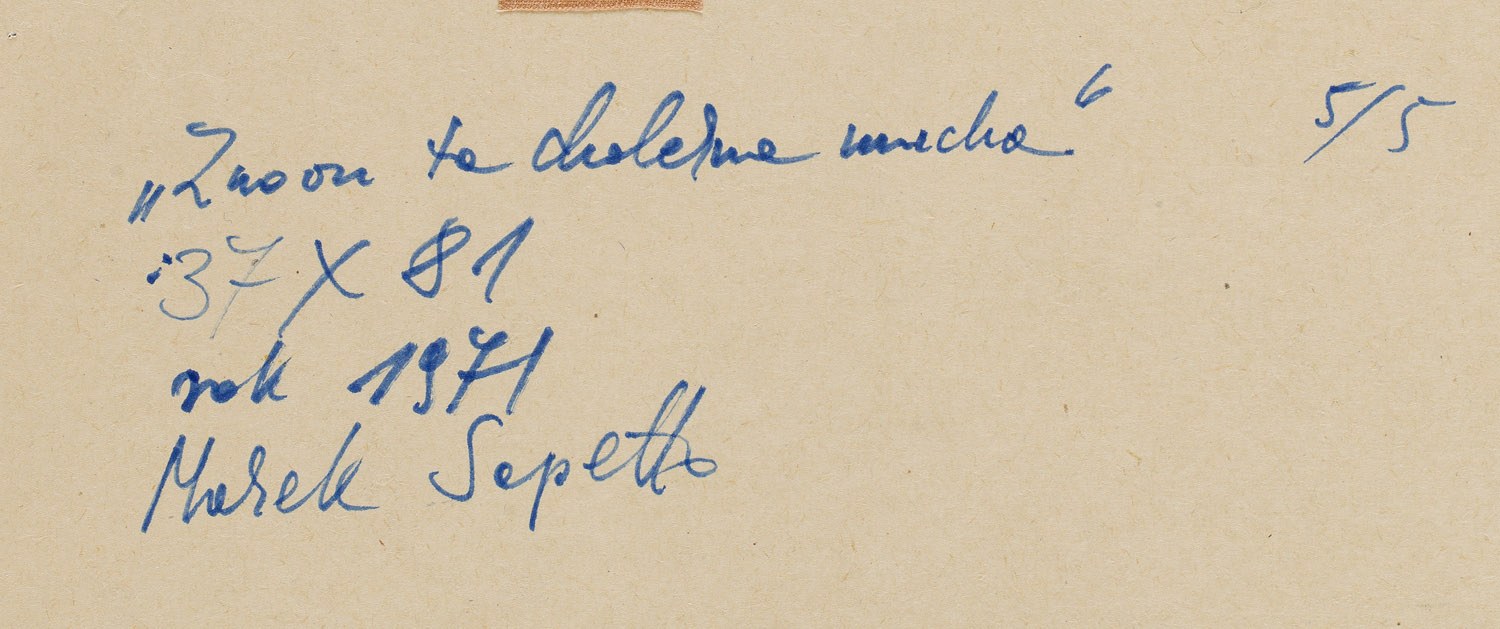 „Znowu ta cholerna mucha“ 5/5
37 X 81
rok 1971
Marek Sapetto